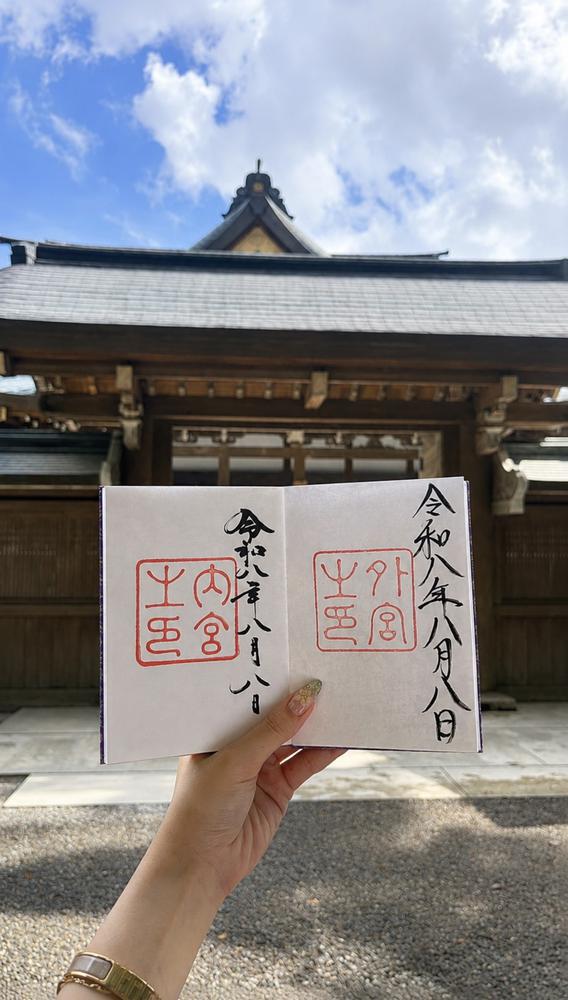 令和八年八月八日
外宮
之印
令和八年八月八日
内宮
之印